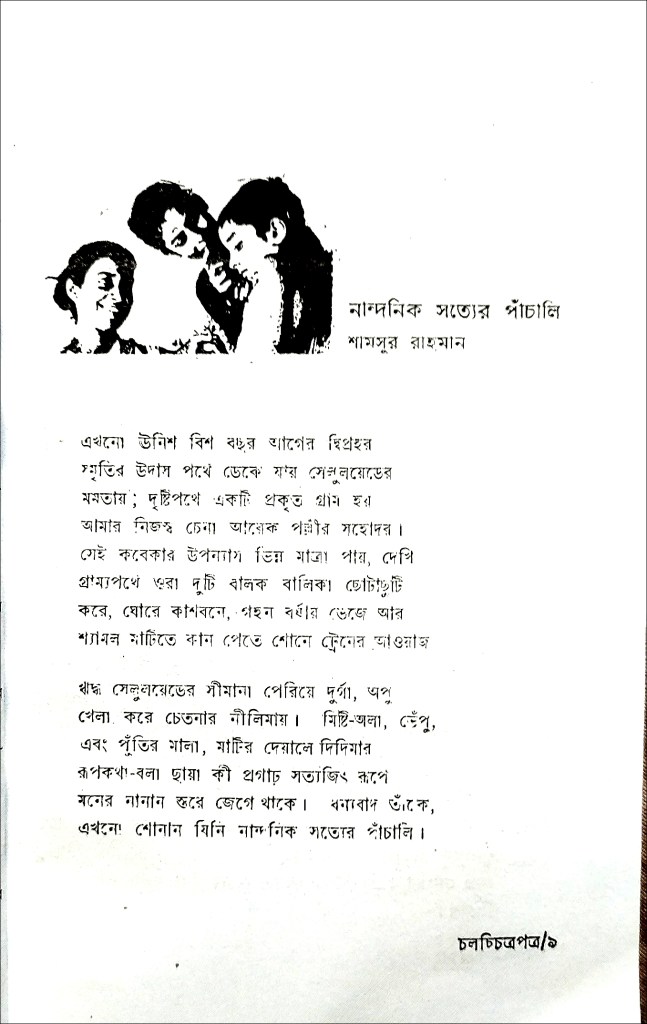 নান্দনিক সত্যের পাঁচালি
শামসুর রাহমান
এখনো উনিশ বিশ বছর আগের দ্বিপ্রহর
স্মৃতির উদাস পথে ডেকে যায় সেলুলয়েডের
মমতায়; দৃষ্টিপথে একটি প্রকৃত গ্রাম হয়
আমার নিজস্ব চেনা আরেক পল্লীর সহোদর।
সেই কবেকার উপন্যাস ভিন্ন মাত্রা পায়, দেখি
গ্রাম্যপথে ওরা দুটি বালক বালিকা ছোটাছুটি
করে, ঘোরে কাশবনে, গহন বর্ষায় ভেজে আর
শ্যামল মাটিতে কান পেতে শোনে ট্রেনের আওয়াজ
ঋদ্ধ সেলুলয়েডের সীমানা পেরিয়ে দুর্গা, অপু
খেলা করে চেতনার নীলিমায়। মিষ্টি-অলা, ভেঁপু,
এবং পুঁতির মালা, মাটির দেয়ালে দিদিমার
রূপকথা-বলা ছায়া কী প্রগাঢ় সত্যজিৎ রূপে
মনের নানান স্তরে জেগে থাকে। ধন্যবাদ তাঁকে,
এখনো শোনান যিনি নান্দনিক সত্যের পাঁচালি।
চলচ্চিত্রপত্র/৯